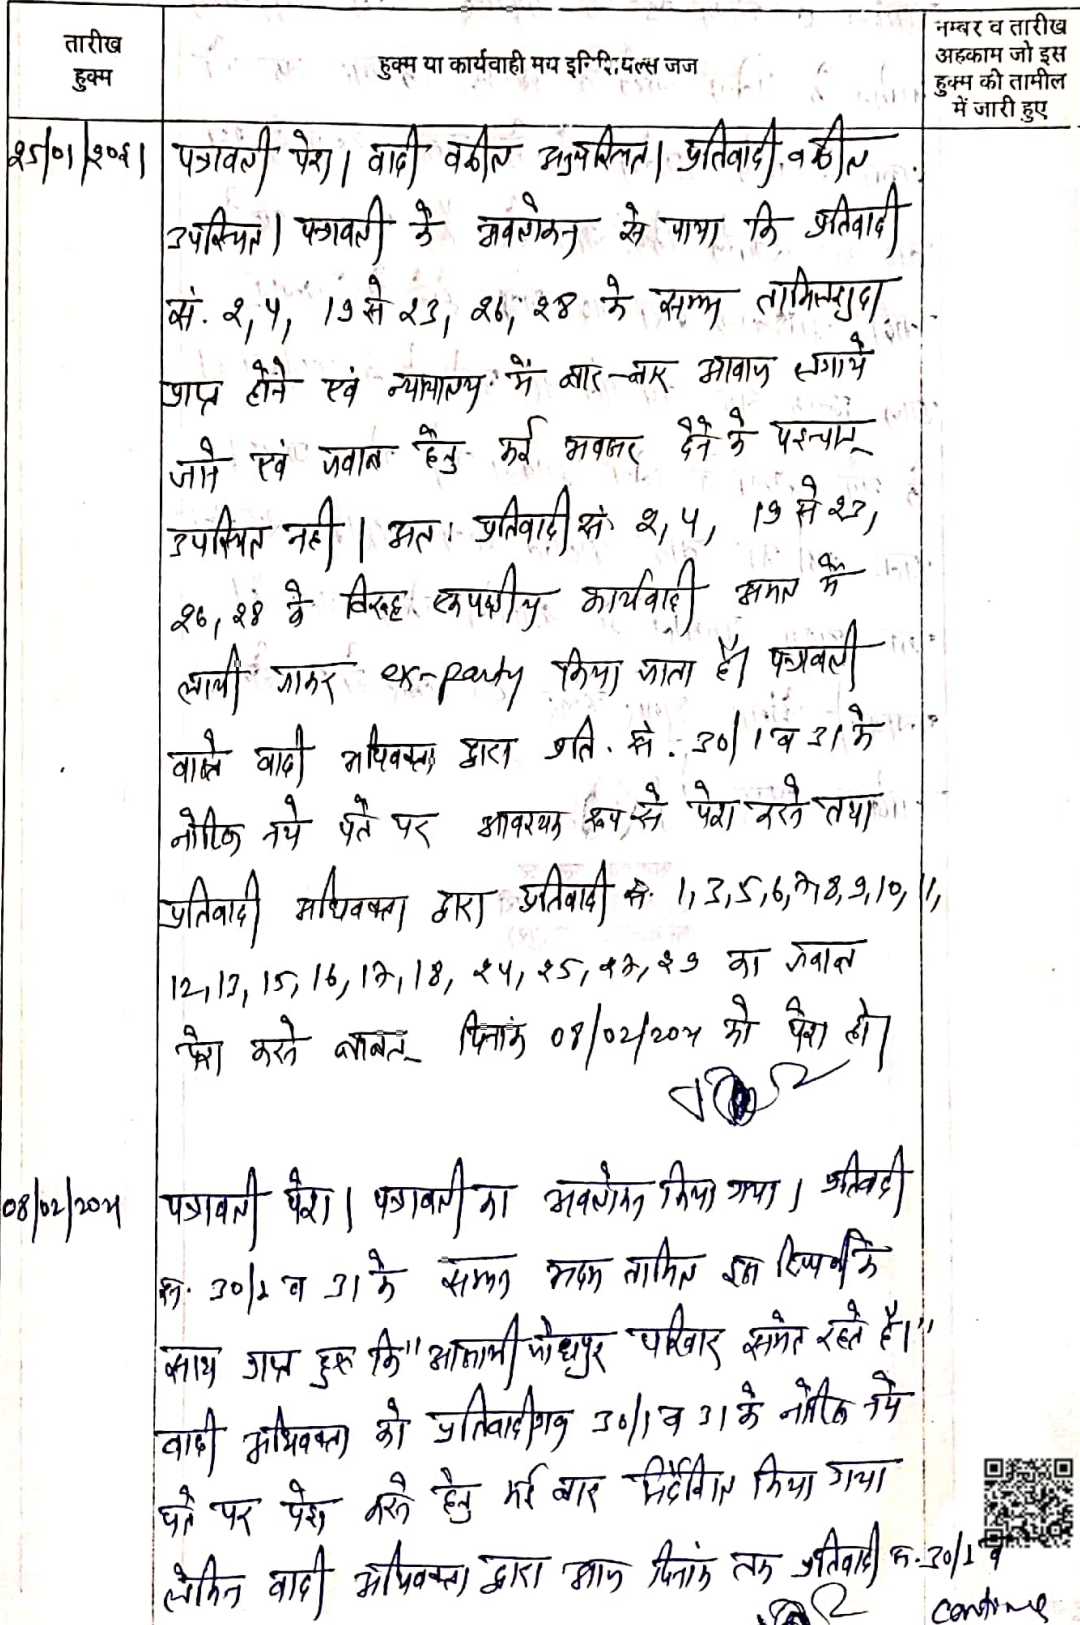 तारीख
हुक्म
हुक्म या कार्यवाही मय इनिशियल्स जज
नम्बर व तारीख
अहकाम जो इस
हुक्म की तामील
में जारी हुए
25/01/2021 पत्रावली पेश। वादी वकील अनुपस्थित। प्रतिवादी वकील
उपस्थित। पत्रावली के अवलोकन से पाया कि प्रतिवादी
सं. 2, 4, 19 से 23, 26, 28 के सम्मन तामिलशुदा
प्राप्त होने एवं न्यायालय में बार-बार आवाज लगाये
जाने एवं जवाब हेतु कई अवसर देने के पश्चात्
उपस्थित नही। अतः प्रतिवादी सं. 2, 4, 19 से 23,
26, 28 के विरुद्ध एकपक्षीय कार्यवाही अमल में
लायी जाकर ex-party किया जाता है। पत्रावली
वास्ते वादी अधिवक्ता द्वारा प्रति. सं. 30/1 व 31 के
नोटिस नये पते पर आवश्यक रूप से पेश करने तथा
प्रतिवादी अधिवक्ता द्वारा प्रतिवादी सं. 1, 3, 5, 6, 7, 8, 9, 10, 11,
12, 13, 15, 16, 17, 18, 24, 25, 27, 29 का जवाब
पेश करने बाबत् दिनांक 08/02/2021 को पेश हो।
08/02/2021 पत्रावली पेश। पत्रावली का अवलोकन किया गया। प्रतिवादी
सं. 30/1 व 31 के सम्मन अदम तामिल इस टिप्पणी के
साथ प्राप्त हुए कि "आसामी जोधपुर परिवार समेत रहते है।"
वादी अधिवक्ता को प्रतिवादीगण 30/1 व 31 के नोटिस नये
पते पर पेश करने हेतु कई बार निर्देशित किया गया
लेकिन वादी अधिवक्ता द्वारा आज दिनांक तक प्रतिवादी सं. 30/1 व
continue